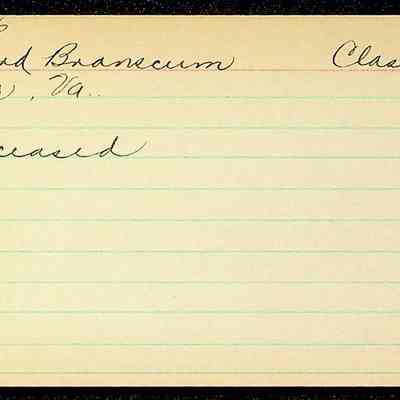 6
rd Branscum Clas
, Va.
ceased